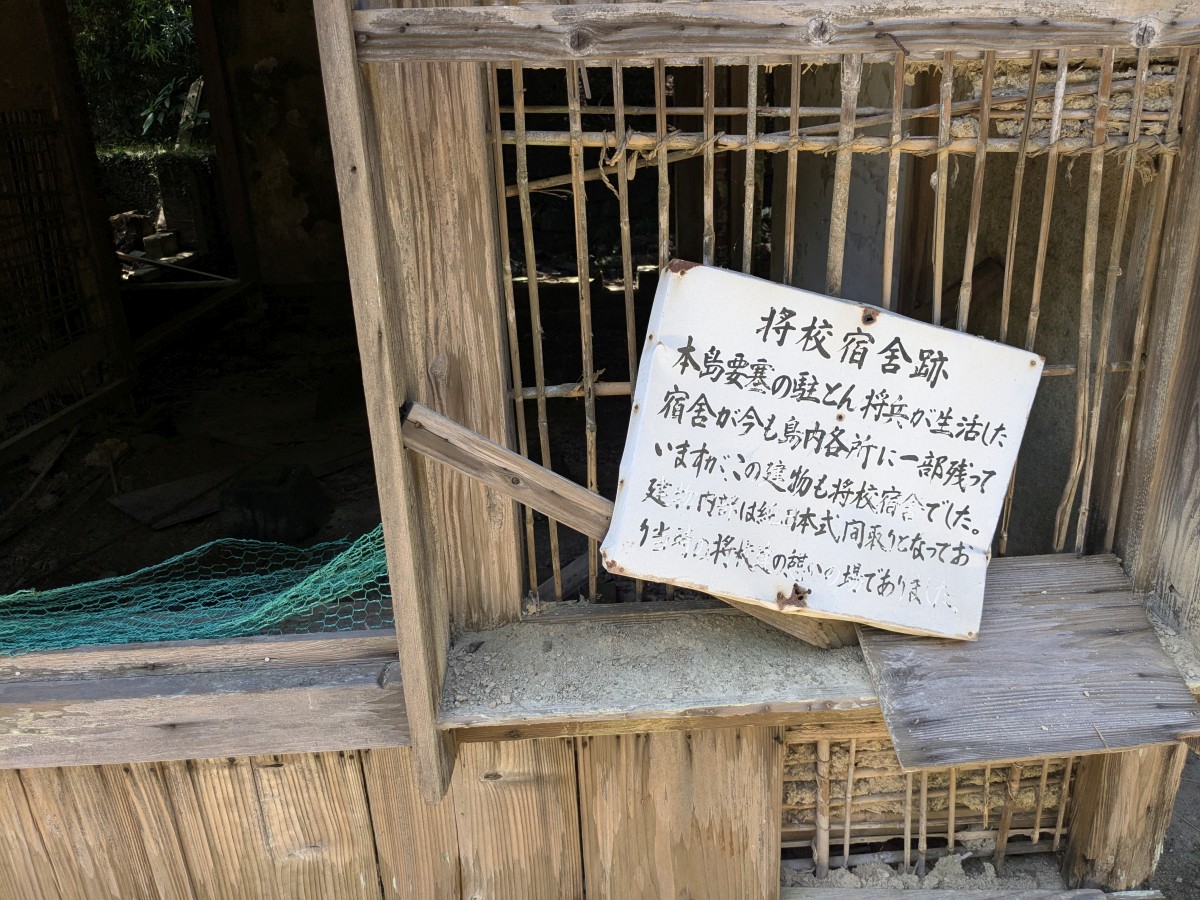 将校宿舎跡
本島要塞の駐とん将兵が生活した
宿舎が今も島内各所に一部残って
いますが、この建物も将校宿舎でした。
建物内部は純日本式間取りとなってお
り当時の将校達の憩いの場でありました。